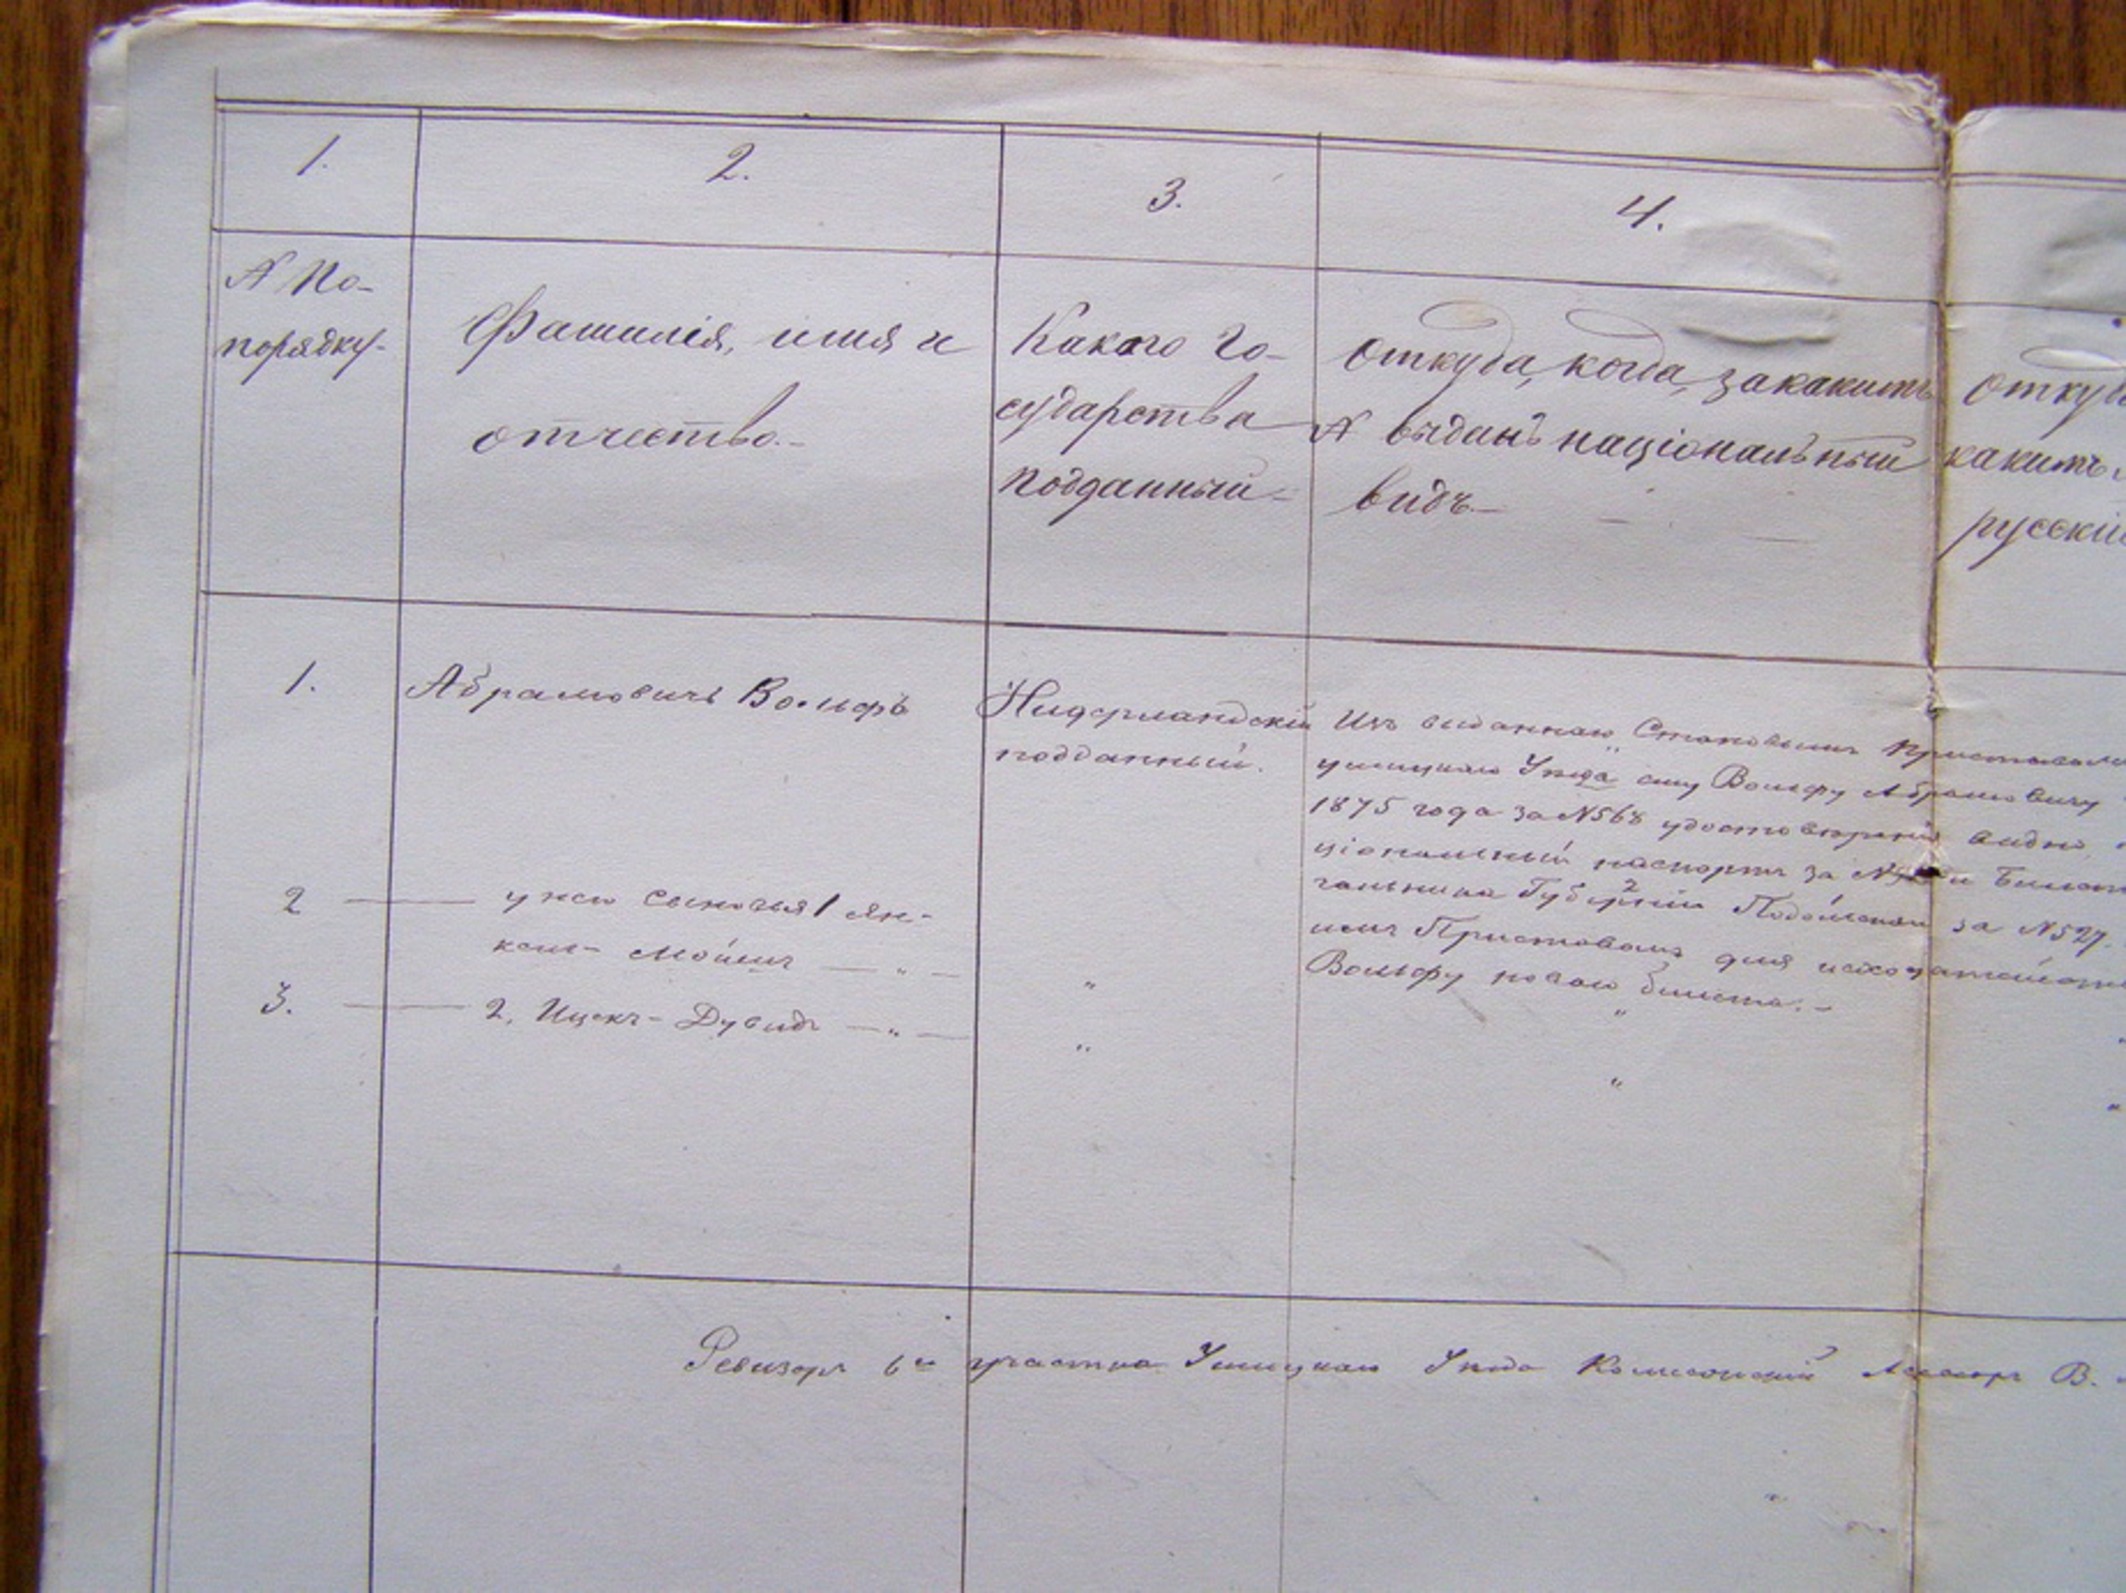 1.
2.
3.
4.
№ По-
порядку.
Фамилія, имя и
отчество.-
Какого го-
сударства
подданный-
Откуда, когда, за какимъ
№ выданъ національный
видъ.-
откуд
какимъ
русскій
1.
Абрамовичъ Вольфъ
Нидерландскій
подданный.
Изъ выданнаго Становымъ Приставомъ
ушицкаго Уѣзда ему Вольфу Абрамовичу
1875 года за №568 удостовѣренія видно
ціональный паспортъ за № и билет
чальника Губерніи Подольской за №527.
Приставомъ для исходатайств
Вольфу новаго билета.-
2 — у него сыновья 1 Ян-
кель- Мойше — " —
"
"
3. — 2. Ицекъ- Дувидъ — " —
"
"
Ревизоръ 6го участка Ушицкаго Уѣзда В.